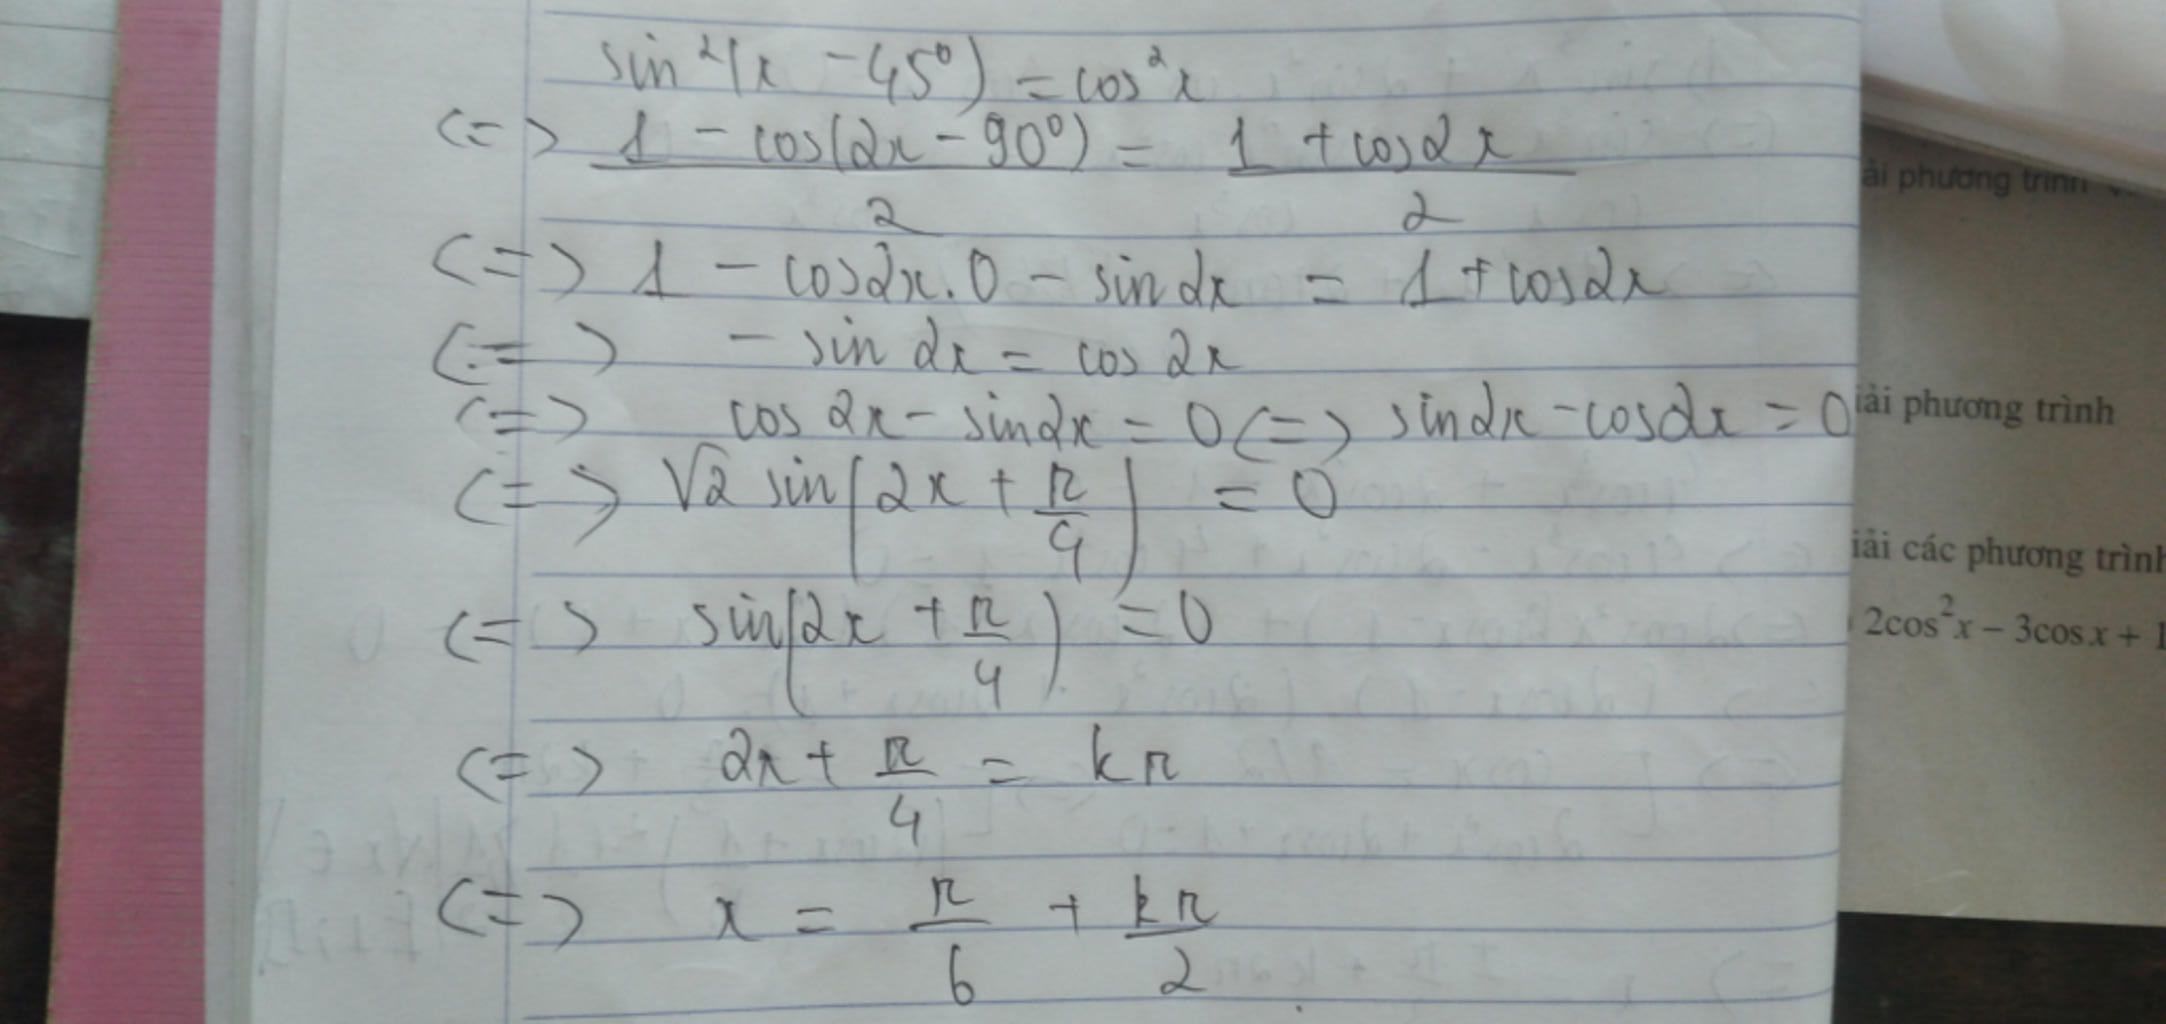 sin²(x - 45⁰) = cos²x
<=> (1 - cos(2x - 90⁰))/2 = (1 + cos2x)/2
<=> 1 - cos2x.0 - sin2x = 1 + cos2x
<=> - sin 2x = cos 2x
<=> cos 2x - sin2x = 0 <=> sin2x - cos2x = 0
<=> √2 sin(2x + π/4) = 0
<=> sin(2x + π/4) = 0
<=> 2x + π/4 = kπ
<=> x = π/6 + kπ/2
ải phương trình
iải phương trình
iải các phương trình
2cos²x - 3cosx + 1